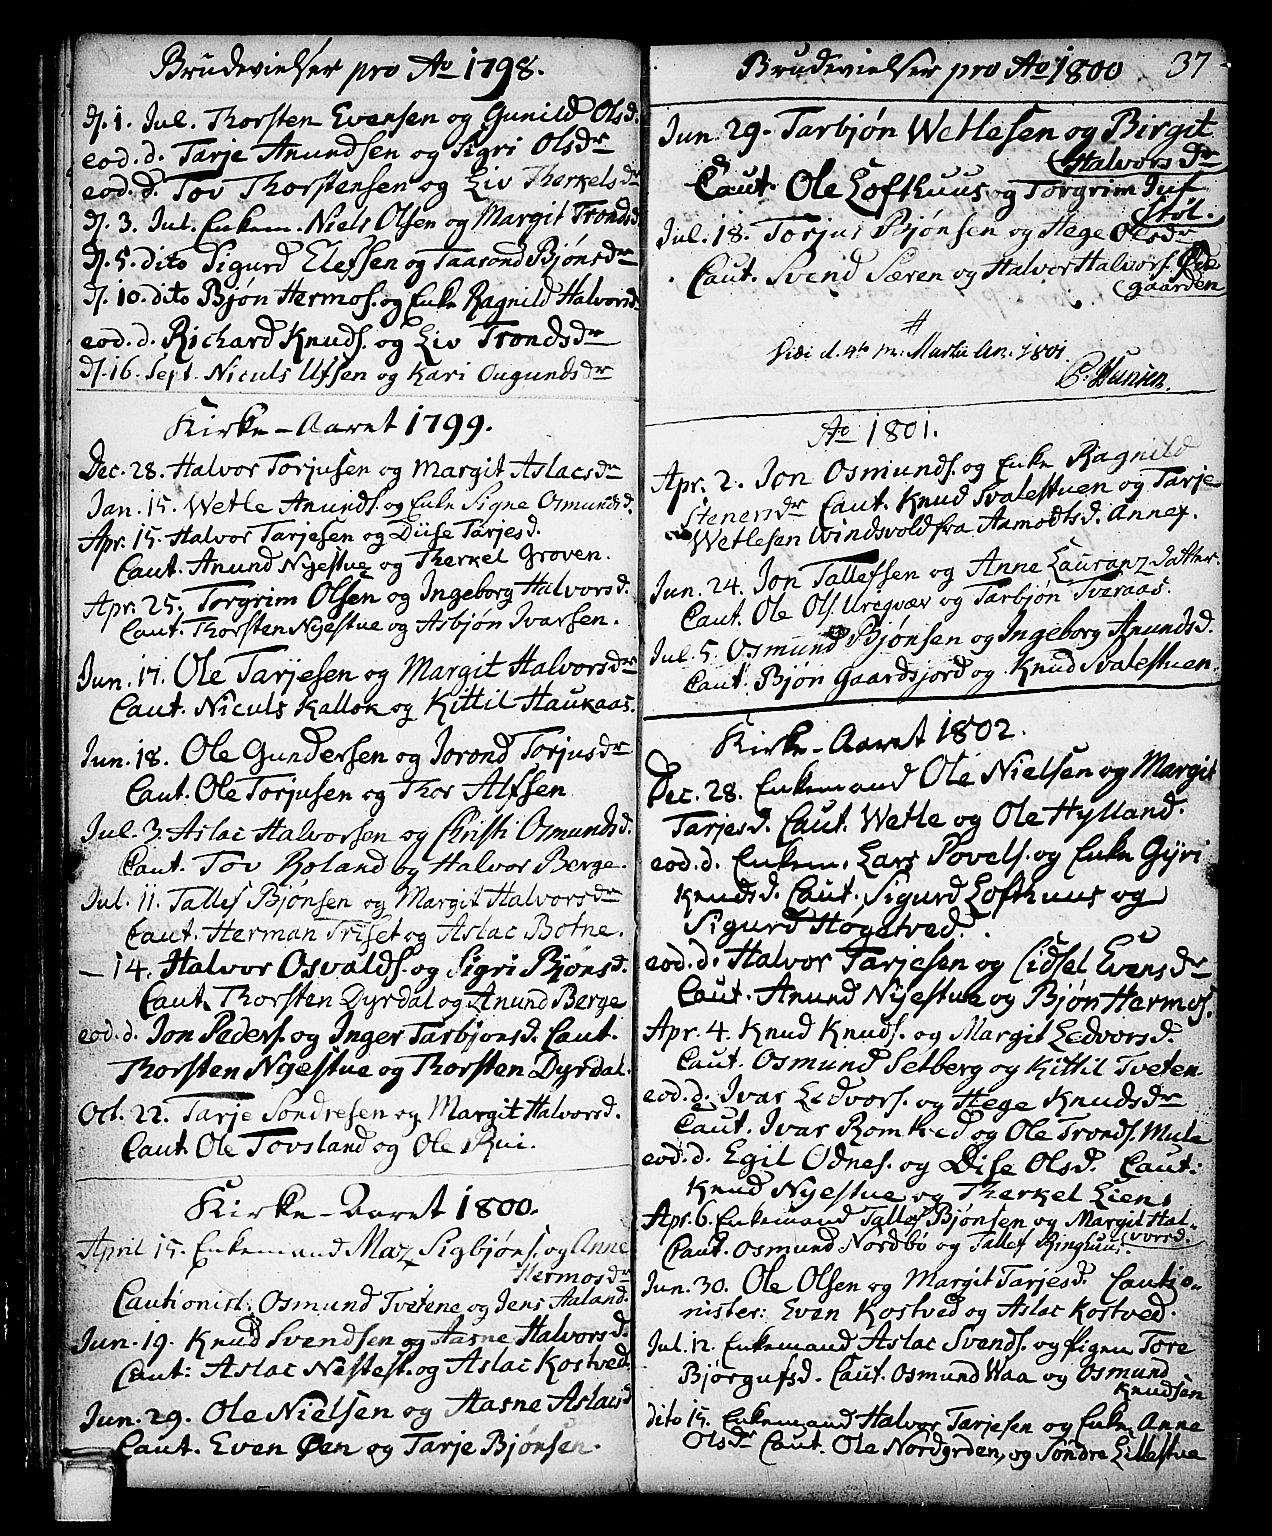 Brudevielser pro Ao 1798.
d. 1. Jul. Thorsten Evensen og Gunild Olsd.
eod. d. Tarje Anundsen og Sigri Olsdr
eod. d. Tov Thorstensen og Liv Therkelsdr
d. 3. Jul. Enkem. Niels Olsen og Margit Trondsd.
d. 5. dito Sigurd Elefsen og Taarand Bjønsdr
d. 10. dito Bjøn Hermos. og Enke Ragnild Halvorsd.
eod. d. Richard Knuds. og Liv Trondsdr
d. 16. Sept. Niculs Ufsen og Kari Ougundsdr
Kirke-Aaret 1799.
Dec. 28. Halvor Torjusen og Margit Aslacsdr
Jan. 15. Wetle Anunds. og Enke Signe Osmundsd.
Apr. 15. Halvor Tarjesen og Diise Tarjesd.
Caut. Anund Nyestue og Therkel Groven.
Apr. 25. Torgrim Olsen og Ingeborg Halvorsd.
Caut. Thorsten Nyestue og Asbjön Ivarsen.
Jun. 17. Ole Tarjesen og Margit Halvorsdr
Caut. Niculs Kallok og Kittil Haukaas.
Jun. 18. Ole Gundersen og Jorond Torjusdr
Caut. Ole Torjusen og Thor Alfsen
Jul. 3. Aslac Halvorsen og Christi Osmundsd.
Caut. Tov Roland og Halvor Berge.
Jul. 11. Tallef Bjønsen og Margit Halvorsdr
Caut. Herman Triset og Aslac Botne.
— 14. Halvor Osvalds. og Sigri Bjønsd.
Caut. Thorsten Dyrdal og Anund Berge
eod. d. Jon Peders. og Inger Tarbjønsd. Caut.
Thorsten Nyestue og Thorsten Dyrdal.
Oct. 22. Tarje Sondresen og Margit Halvorsd.
Caut. Ole Tovsland og Ole Rui.
Kirke-Aaret 1800.
April 15. Enkemand Maz Sigbjøns. og Anne
Hermosdr
Cautionist: Osmund Tvetene og Jens Aaland.
Jun. 19. Knud Svendsen og Aasne Halvorsd.
Caut: Aslac Nestest. og Aslac Kostved.
Jun. 29. Ole Nielsen og Aasne Aslacsd
Caut. Even Øen og Tarje Bjønsen.
Brudevielser pro Ao 1800 37
Jun. 29. Tarbjøn Wetlesen og Birgit
Halvorsdr
Caut. Ole Lofthuus og Torgrim Juf
støl.
Jul. 18. Torjus Bjønsen og Hege Olsdr
Caut. Svend Særen og Halvor Halvors. Øde
gaarden
Vidi d. 4te M: Martii An. 1801.
Ao 1801.
Apr. 2. Jon Osmunds. og Enke Ragnild
Stenersdr Caut. Knud Svalestuen og Tarje
Wetlesen Windsvold fra Aamodtsd. Annex.
Jun. 24. Jon Tallefsen og Anne Lauranz Dattr.
Caut. Ole Ols. Uregvæv og Tarbjön Tveraas.
Jul. 5. Osmund Bjønsen og Ingeborg Anundsd.
Caut. Bjøn Gaardsjord og Knud Svalestuen.
Kirke-Aaret 1802.
Dec. 28. Enkemand Ole Nielsen og Margit
Tarjesd. Caut. Wetle og Ole Hylland.
eod. d. Enkem. Lars Povels. og Enke Gyri
Knudsd. Caut. Sigurd Lofthuus og
Sigurd Høgetved.
eod. d. Halvor Tarjesen og Lidsel Evensdr
Caut. Anund Nyestue og Bjøn Hermos.
Apr. 4. Knud Knuds. og Margit Ledvorsd.
Caut. Osmund Selberg og Kittil Tveten.
eod. d. Ivar Ledvors. og Hege Knudsdr
Caut. Ivar Romtved og Ole Tronds. Mule
eod. d. Egil Odnes. og Dise Olsd. Caut:
Knud Nyestue og Therkel Lien.
Apr. 6. Enkemand Tallef Bjønsen og Margit Hal-
vorsd.
Caut. Osmund Nordbø og Tallef Ringhuus.
Jun. 30. Ole Olsen og Margit Tarjesd. Cautio-
nister: Even Kostved og Aslac Kostved.
Jul. 12. Enkemand Aslac Svends. og Pigen Tore
Bjørgufsd. Caut. Osmund Waa og Osmund
Knudsen
dito 15. Enkemand Halvor Tarjesen og Enke Anne
Olsdr Caut. Ole Nordgrden, og Søndre Lillestue